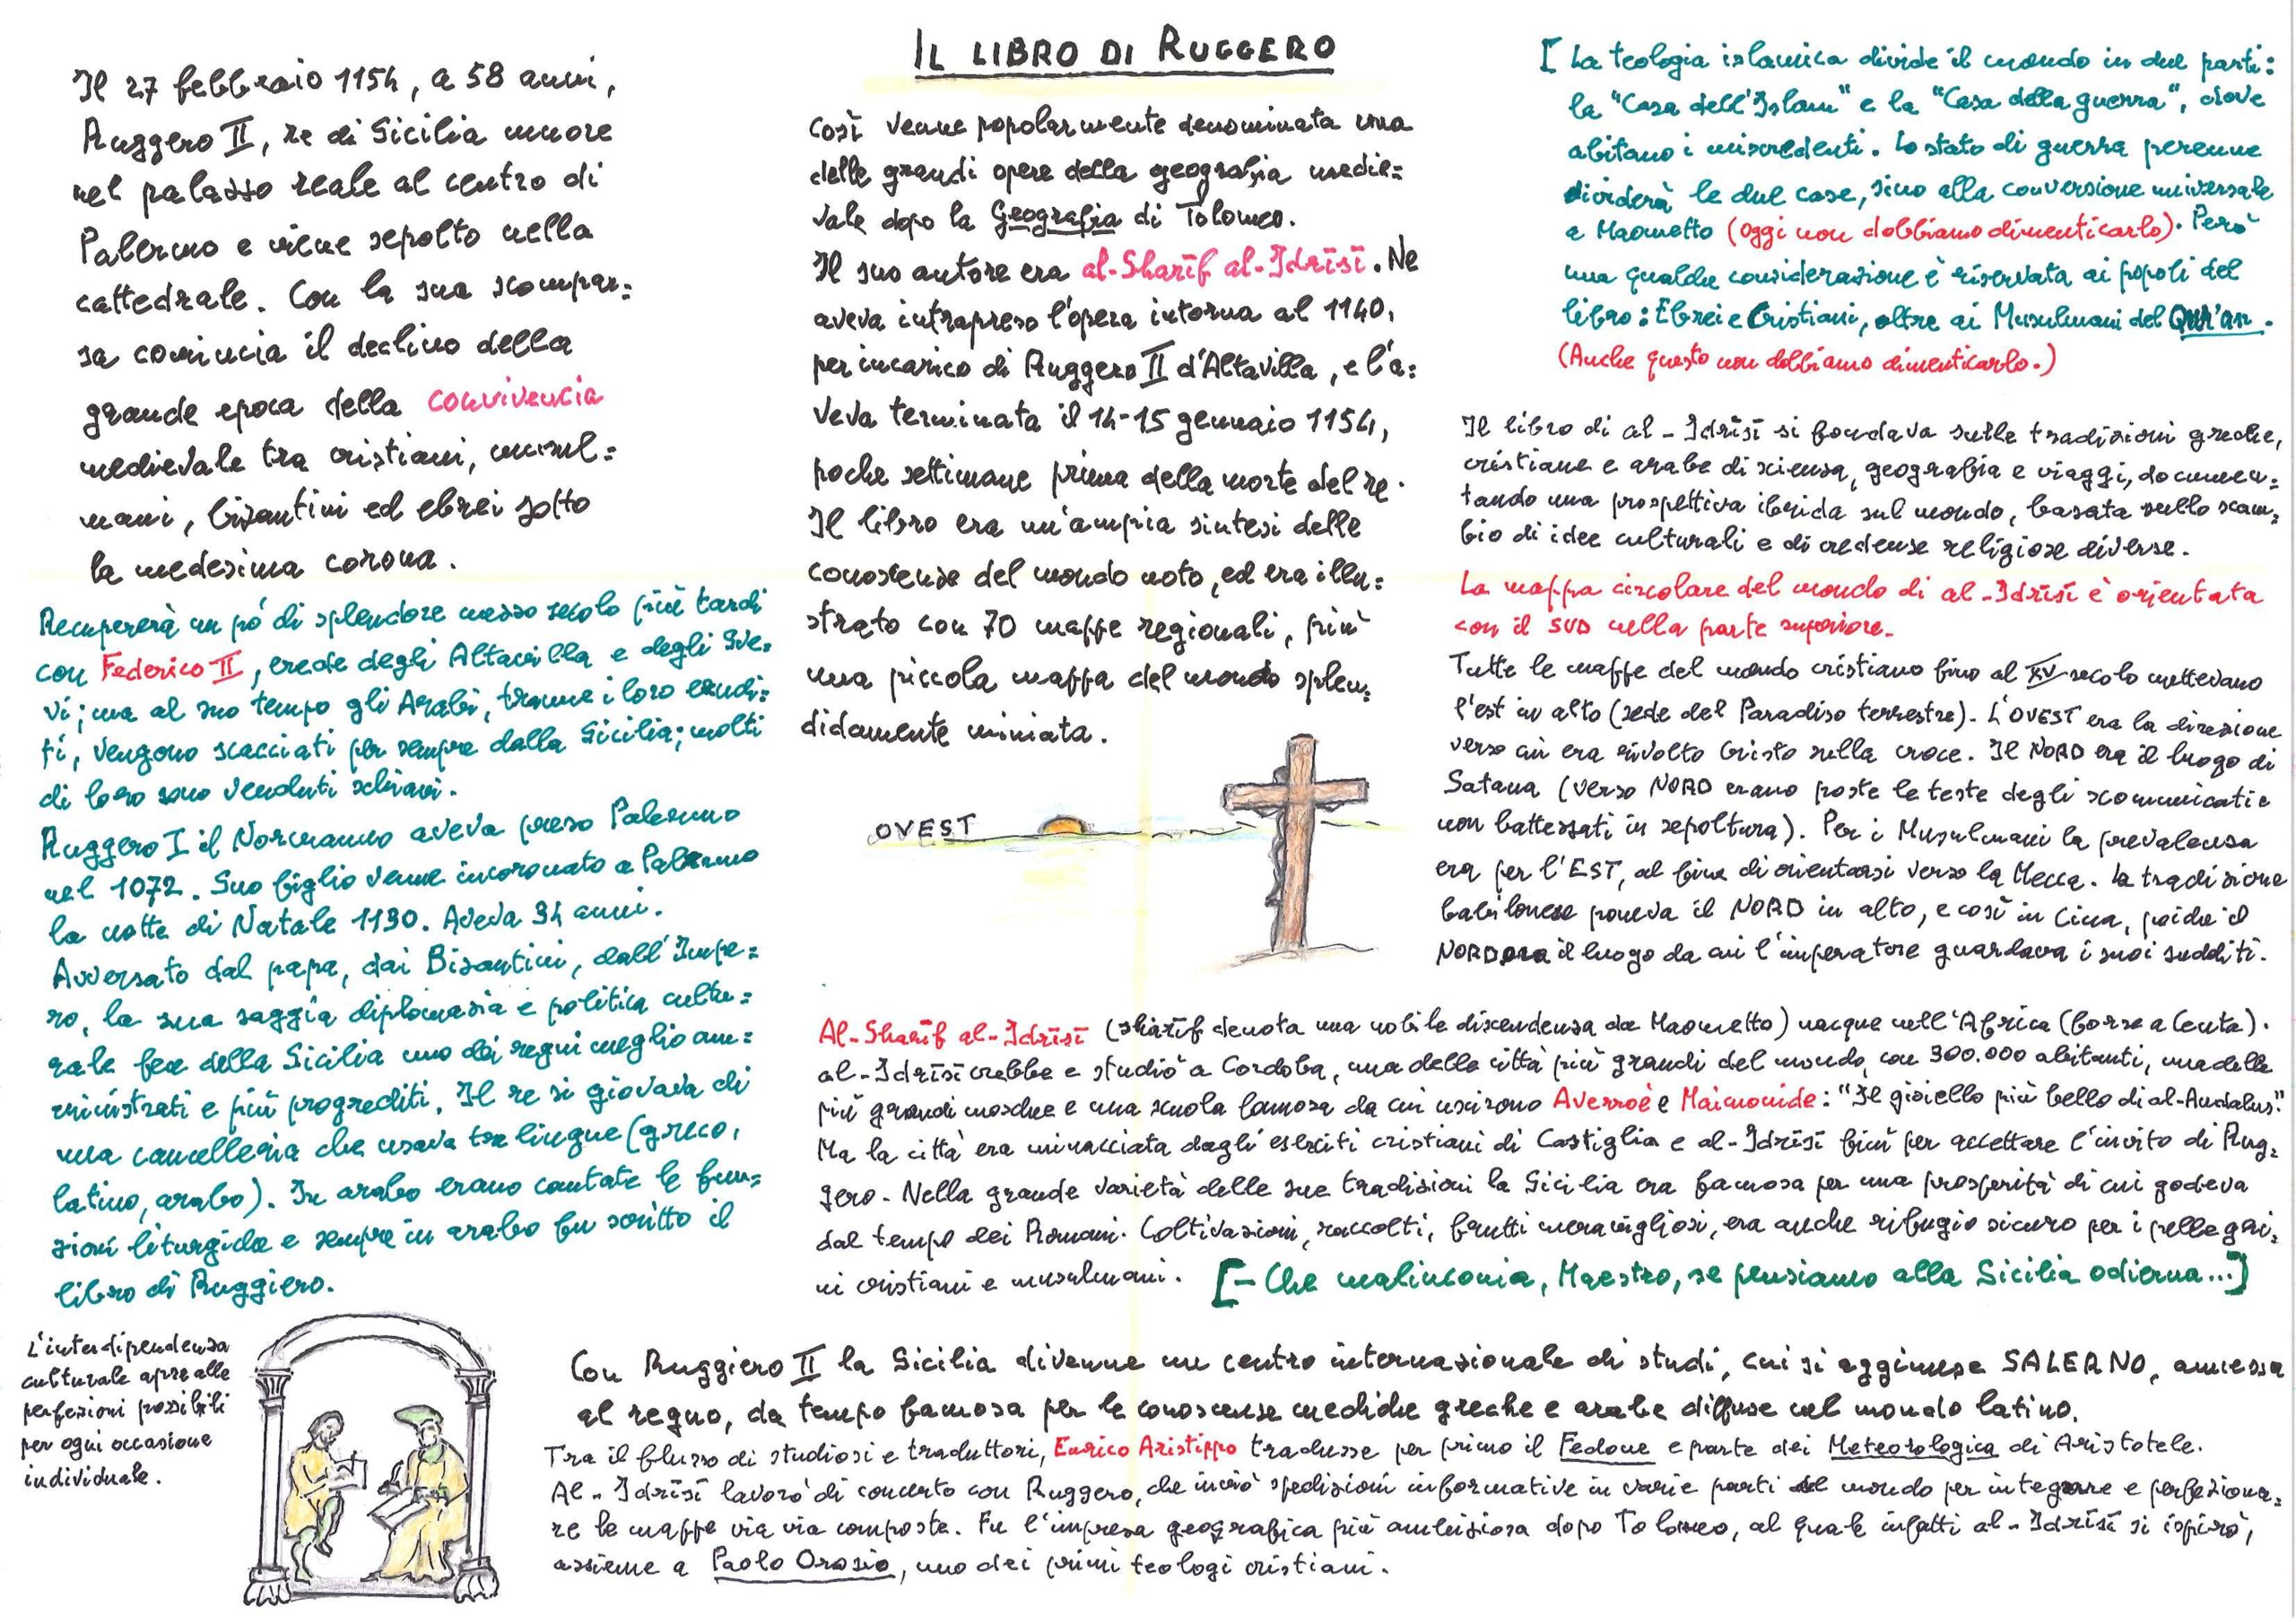 IL LIBRO DI RUGGERO
Il 27 febbraio 1154, a 58 anni,
Ruggero II, re di Sicilia muore
nel palazzo reale al centro di
Palermo e viene sepolto nella
cattedrale. Con la sua scompar=
sa comincia il declino della
grande epoca della convivencia
medievale tra cristiani, musul=
mani, bizantini ed ebrei sotto
la medesima corona.
Recupererà un pó di splendore mezzo secolo più tardi
con Federico II, erede degli Altavilla e degli Sve=
vi; ma al suo tempo gli Arabi, tranne i loro erudi=
ti, vengono scacciati per sempre dalla Sicilia; molti
di loro sono venduti schiavi.
Ruggero I il Normanno aveva preso Palermo
nel 1072. Suo figlio venne incoronato a Palermo
la notte di Natale 1130. Aveva 34 anni.
Avversato dal papa, dai Bizantini, dall'Impe=
ro, la sua saggia diplomazia e politica cultu=
rale fece della Sicilia uno dei regni meglio am=
ministrati e più progrediti. Il re si giovava di
una cancelleria che usava tre lingue (greco,
latino, arabo). In arabo erano cantate le fun=
zioni liturgiche e sempre in arabo fu scritto il
libro di Ruggiero.
L'interdipendenza
culturale apre alle
perfezioni possibili
per ogni occasione
individuale.
Così venne popolarmente denominata una
delle grandi opere della geografia medie=
vale dopo la Geografia di Tolomeo.
Il suo autore era al-Sharīf al-Idrīsī. Ne
aveva intrapreso l'opera intorna al 1140,
per incarico di Ruggero II d'Altavilla, e l'a=
veva terminata il 14-15 gennaio 1154,
poche settimane prima della morte del re.
Il libro era un'ampia sintesi delle
conoscenze del mondo noto, ed era illu=
strato con 70 mappe regionali, più
una piccola mappa del mondo splen=
didamente miniata.
OVEST
[ La teologia islamica divide il mondo in due parti:
la "Casa dell'Islam" e la "Casa della guerra", dove
abitano i miscredenti. Lo stato di guerra perenne
dividerà le due case, sino alla conversione universale
a Maometto (oggi non dobbiamo dimenticarlo). Però
una qualche considerazione è riservata ai popoli del
libro: Ebrei e Cristiani, oltre ai Musulmani del Qur'an.
(Anche questo non dobbiamo dimenticarlo.)
Il libro di al-Idrīsī si fondava sulle tradizioni greche,
cristiane e arabe di scienza, geografia e viaggi, documen=
tando una prospettiva ibrida sul mondo, basata sullo scam=
bio di idee culturali e di credenze religiose diverse.
La mappa circolare del mondo di al-Idrīsī è orientata
con il SUD nella parte superiore.
Tutte le mappe del mondo cristiano fino al XV secolo mettevano
l'est in alto (sede del Paradiso terrestre). L'OVEST era la direzione
verso cui era rivolto Cristo sulla croce. Il NORD era il luogo di
Satana (verso NORD erano poste le teste degli scomunicati e
non battezzati in sepoltura). Per i Musulmani la prevalenza
era per l'EST, al fine di orientarsi verso la Mecca. La tradizione
babilonese poneva il NORD in alto, e così in Cina, poiché il
NORD era il luogo da cui l'imperatore guardava i suoi sudditi.
Al-Sharīf al-Idrīsī (sharīf denota una nobile discendenza da Maometto) nacque nell'Africa (forse a Ceuta).
al-Idrīsī crebbe e studiò a Cordoba, una delle città più grandi del mondo, con 300.000 abitanti, una delle
più grandi moschee e una scuola famosa da cui uscirono Averroè e Maimonide: "Il gioiello più bello di al-Andalus".
Ma la città era minacciata dagli eserciti cristiani di Castiglia e al-Idrīsī finì per accettare l'invito di Rug=
gero. Nella grande varietà delle sue tradizioni la Sicilia era famosa per una prosperità di cui godeva
dal tempo dei Romani. Coltivazioni, raccolti, frutti meravigliosi, era anche rifugio sicuro per i pellegri=
ni cristiani e musulmani. [- Che malinconia, Maestro, se pensiamo alla Sicilia odierna...]
Con Ruggiero II la Sicilia divenne un centro internazionale di studi, cui si aggiunse SALERNO, annessa
al regno, da tempo famosa per le conoscenze mediche greche e arabe diffuse nel mondo latino.
Tra il flusso di studiosi e traduttori, Enrico Aristippo tradusse per primo il Fedone e parte dei Meteorologica di Aristotele.
Al-Idrīsī lavorò di concerto con Ruggero, che inviò spedizioni informative in varie parti del mondo per integrare e perfeziona=
re le mappe via via composte. Fu l'impresa geografica più ambiziosa dopo Tolomeo, al quale infatti al-Idrīsī si ispirò,
assieme a Paolo Orosio, uno dei primi teologi cristiani.